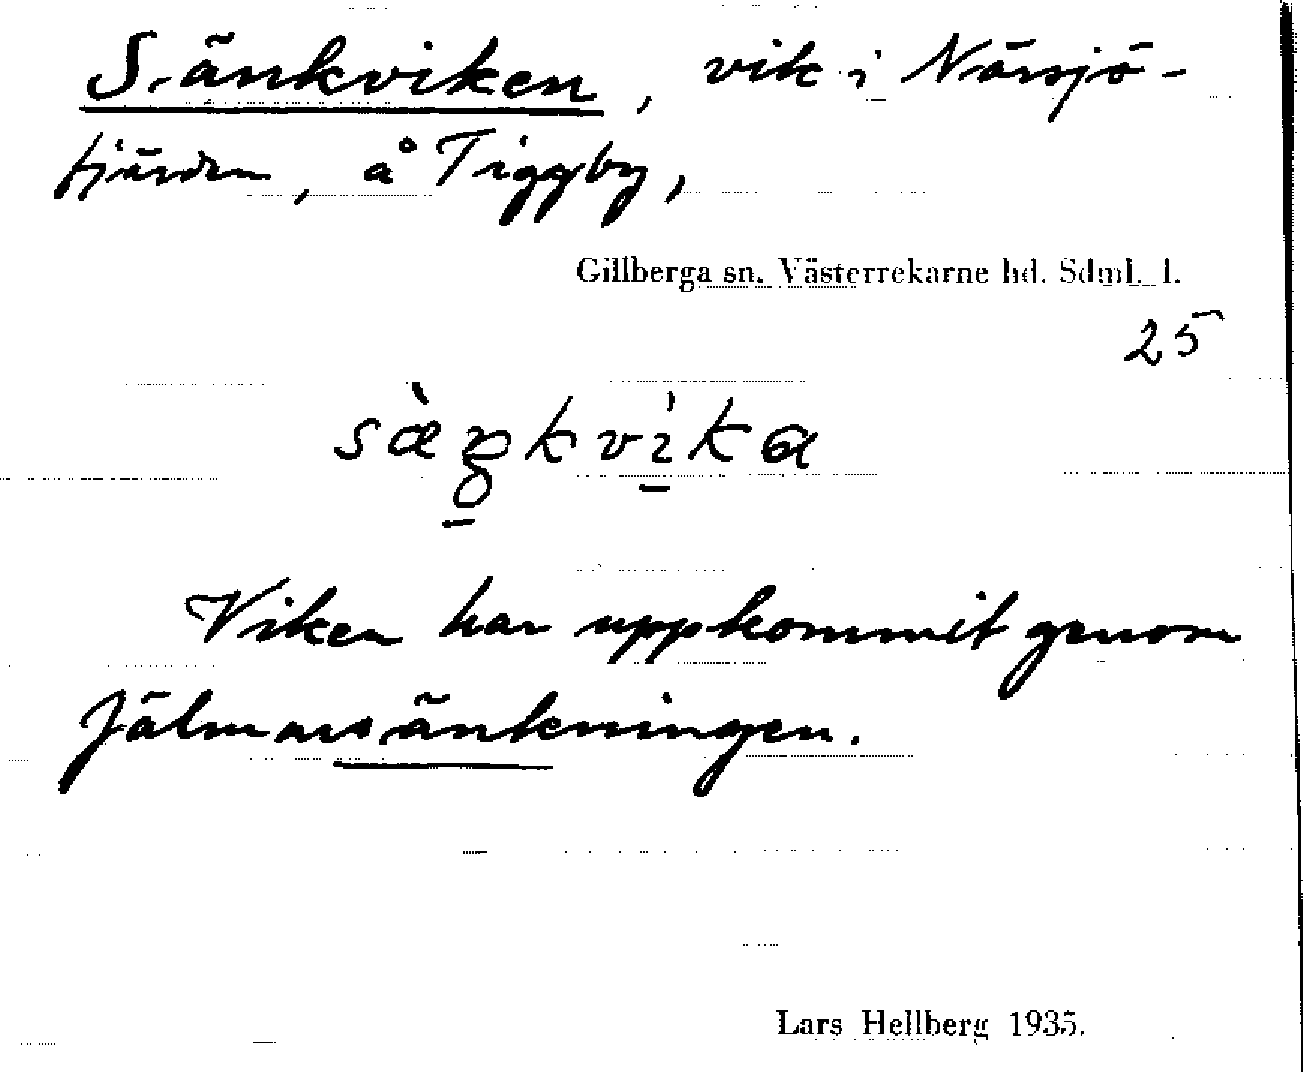 Sänkviken, vik i Näsnsjö-
fjärden, å Tiggby,
Gillberga sn. Västerrekarne hd. Sdml. l.
25
sæ̀ŋkvìka
Viken har uppkommit genom
Jälmarsänkningen.
Lars Hellberg 1935.